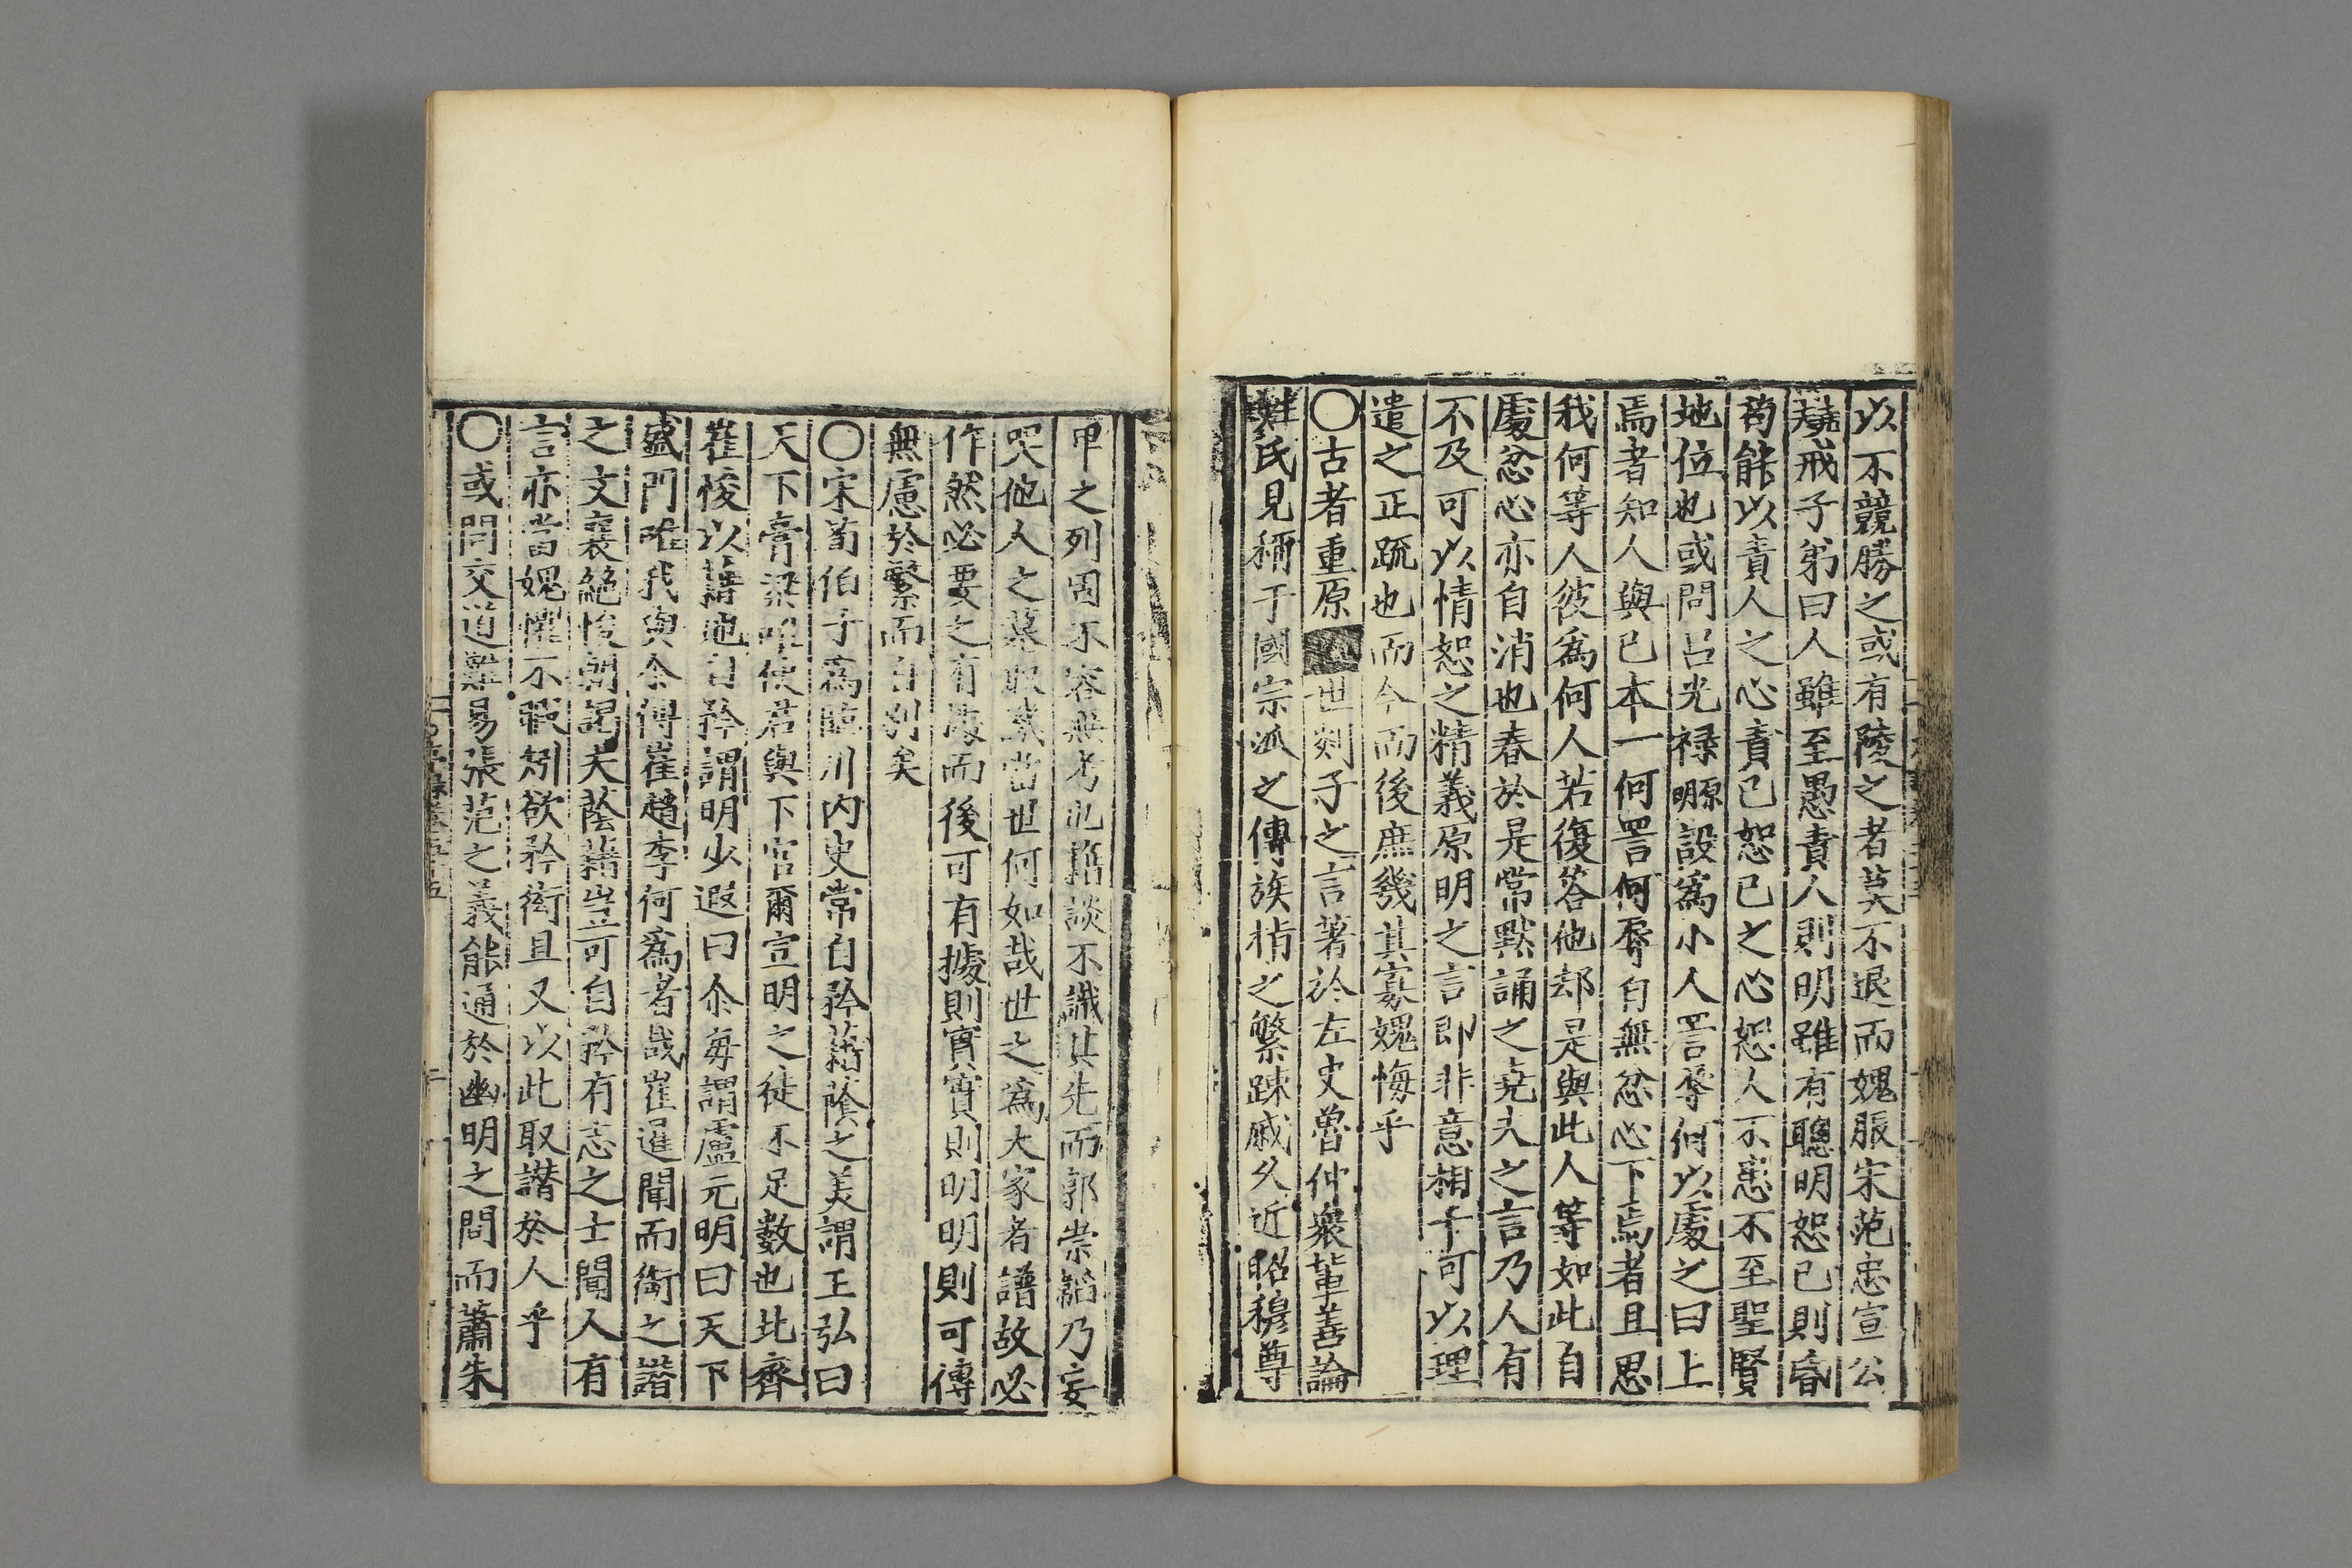 以不競勝之或有陵之者莫不退而媿服宋范忠宣公
戒子弟曰人雖至愚責人則明雖有聰明恕已則昏
苟能以責人之心責已恕已之心恕人不患不至聖賢
地位也或問呂光祿明原設爲小人詈辱何以處之曰上
焉者知人與已本一何詈何辱自無忿心下焉者且思
我何等人彼爲何人若復答他却是與此人等如此自
處忿心亦自消也春於是常默誦之堯夫之言乃人有
不及可以情恕之精義原明之言即非意相干可以理
遣之正䟽也而今而後庶幾其寡媿悔乎
○古者重原世剡子之言著於左史魯仲衆軰善論
姓氏見稱于國宗派之傳族㫖之繁踈戚久近昭穆尊
甲之列固不容無考也籍談不識其先而郭崇韜乃妄
哭他人之墓取譏當世何如哉世之爲大家者譜故必
作然必要之有 而後可有據則實實則明明則可傳
無慮於繁而自別矣
○宋荀伯子爲臨川內史常自矜藉蔭之美謂王弘曰
天下膏梁唯使君與下官爾宣明之徒不足数也北齊
崔㥄以藉地自矜謂明少遐曰尒毎謂盧元明曰天下
盛門唯我與尒傅崔趙李何爲者哉崔暹聞而銜之諧
之文襄絕㥄朝記夫蔭藉豈可自矜有志之士聞人有
言亦當媿懼不暇矧欲矜衒且又以此取譖於人乎
○或問交道難易張范之義能通於幽明之間而蕭朱